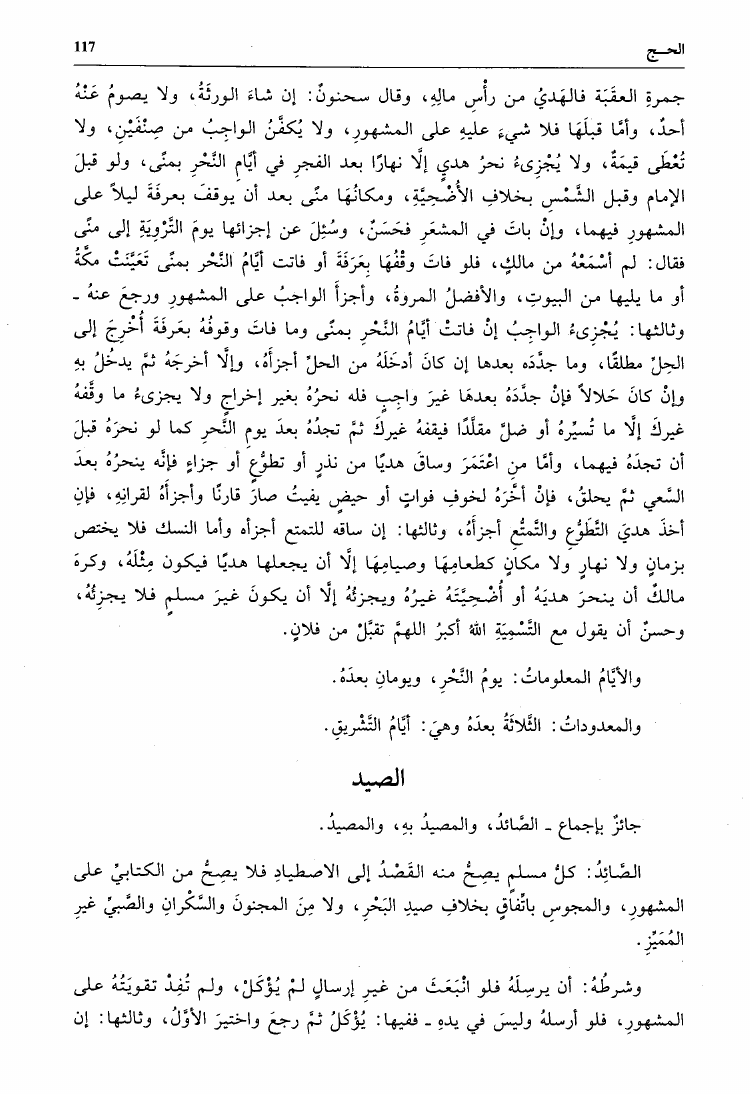 117
الحـج
جمرةِ العقَبَة فالهَديُ من رأْسِ مالِهِ، وقال سحنونٌ: إن شاءَ الورثَةُ، ولا يصومُ عَنْهُ
أحدٌ، وأمَّا قبلَهَا فلا شيءَ عليهِ على المشهورِ، ولا يُكفَّنُ الواجِبُ من صِنْفَيْنِ، ولا
تُعْطَى قيمَةٌ، ولا يُجْزِىءُ نحرُ هديٍ إلَّا نهارًا بعد الفجرِ في أيَّامِ النَّحْرِ بمنًى، ولو قبلَ
الإمام وقبل الشَّمْسِ بخلافِ الأُضْحِيَّةِ، ومكانُهَا منًى بعد أن يوقفَ بعرفَةَ ليلاً على
المشهورِ فيهما، وإنْ باتَ في المشعَرِ فحَسَنٌ، وسُئِلَ عن إجزائها يومَ التَّرْوِيَةِ إلى منًى
فقال: لم أسْمَعْهُ من مالكٍ، فلو فاتَ وقْفُهَا بِعَرَفَةَ أو فاتت أيَّامُ النَّحْر بمنًى تَعَيَّنَتْ مكَّةُ
أو ما يليها من البيوتِ، والأفضلُ المروةُ، وأجزأَ الواجبُ على المشهورِ ورجعَ عنهُ ـ
وثالثها: يُجْزِىءُ الواجِبُ إنْ فاتتْ أيَّامُ النَّحْرِ بمنًى وما فاتَ وقوفُهُ بعَرفَةَ أُخْرِجَ إلى
الحِلِّ مطلقًا، وما جدَّدَه بعدها إن كانَ أدخَلَهُ من الحلِّ أجزأَهُ، وإلَّا أخرجَهُ ثمَّ يدخُلُ بهِ
وإنْ كانَ حَلالاً فإنْ جدَّدَهُ بعدهَا غيرَ واجبٍ فله نحرُهُ بغير إخراجٍ ولا يجزىءُ ما وقَّفهُ
غيركَ إلَّا ما تُسيِّرهُ أو ضلَّ مقلَّدًا فيقفهُ غيركَ ثمَّ تجدُهُ بعدَ يومِ النَّحرِ كما لو نحرَهُ قبلَ
أن تجدَهُ فيهما، وأمَّا منِ اعْتَمَرَ وساقَ هديًا من نذرٍ أو تطوُّعٍ أو جزاءٍ فإنَّه ينحرُهُ بعدَ
السَّعي ثمَّ يحلقُ، فإنْ أخَّرَهُ لخوفِ فواتٍ أو حيضٍ يفيتُ صارَ قارنًا وأجزأَهُ لقرانِهِ، فإنِ
أخذَ هديَ التَّطَوُّعِ والتَّمتُّعِ أجزأهُ، وثالثها: إن ساقه للتمتع أجزأه وأما النسك فلا يختص
بزمانٍ ولا نهارٍ ولا مكانٍ كطعامِهَا وصيامِهَا إلَّا أن يجعلها هديًا فيكون مِثْلَهُ، وكرهَ
مالكٌ أن ينحرَ هديَهُ أو أُضْحِيَّتَهُ غيرُهُ ويجزئُهُ إلَّا أن يكونَ غيرَ مسلمٍ فلا يجزِئُهُ،
وحسنٌ أن يقول مع التَّسْمِيَةِ اللهُ أكبرُ اللهمَّ تقبَّلْ من فلانٍ.
والأيَّامُ المعلوماتُ: يومُ النَّحْرِ، ويومانِ بعدَهُ.
والمعدوداتُ: الثَّلاثَةُ بعدَهُ وهيَ: أيَّامُ التَّشْريقِ.
الصيد
جائزٌ بإجماعٍ ـ الصَّائدُ، والمصيدُ بهِ، والمصيدُ.
الصَّائِدُ: كلُّ مسلمٍ يصِحُّ منه القَصْدُ إلى الاصطيادِ فلا يصِحُّ من الكتابيِّ على
المشهورِ، والمجوسِ باتِّفاقٍ بخلافِ صيدِ البَحْرِ، ولا مِنَ المجنونِ والسَّكْرانِ والصَّبيِّ غيرِ
المُمَيِّزِ.
وشرطُهُ: أن يرسِلَهُ فلو انْبَعَثَ من غيرِ إرسالٍ لمْ يُؤْكَلْ، ولم تُفِدْ تقويَتُهُ على
المشهورِ، فلو أرسلهُ وليسَ في يدهِ ـ ففيها: يُؤْكَلُ ثمَّ رجعَ واختيرَ الأوَّلُ، وثالثها: إن